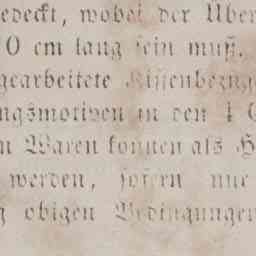 edeckt, wobei der Über
0 cm lang sein muß.
gearbeitete Kissenbezug
ngsmotiven in den 4
n Waren können als H
werden, sofern nur
g obigen Bedingungen